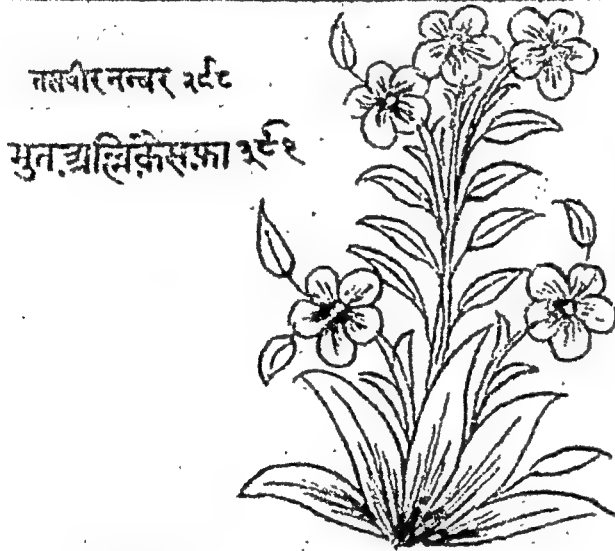 तसवीर नम्बर २९८
मुत.अल्लिके़स.फा़ ३९१